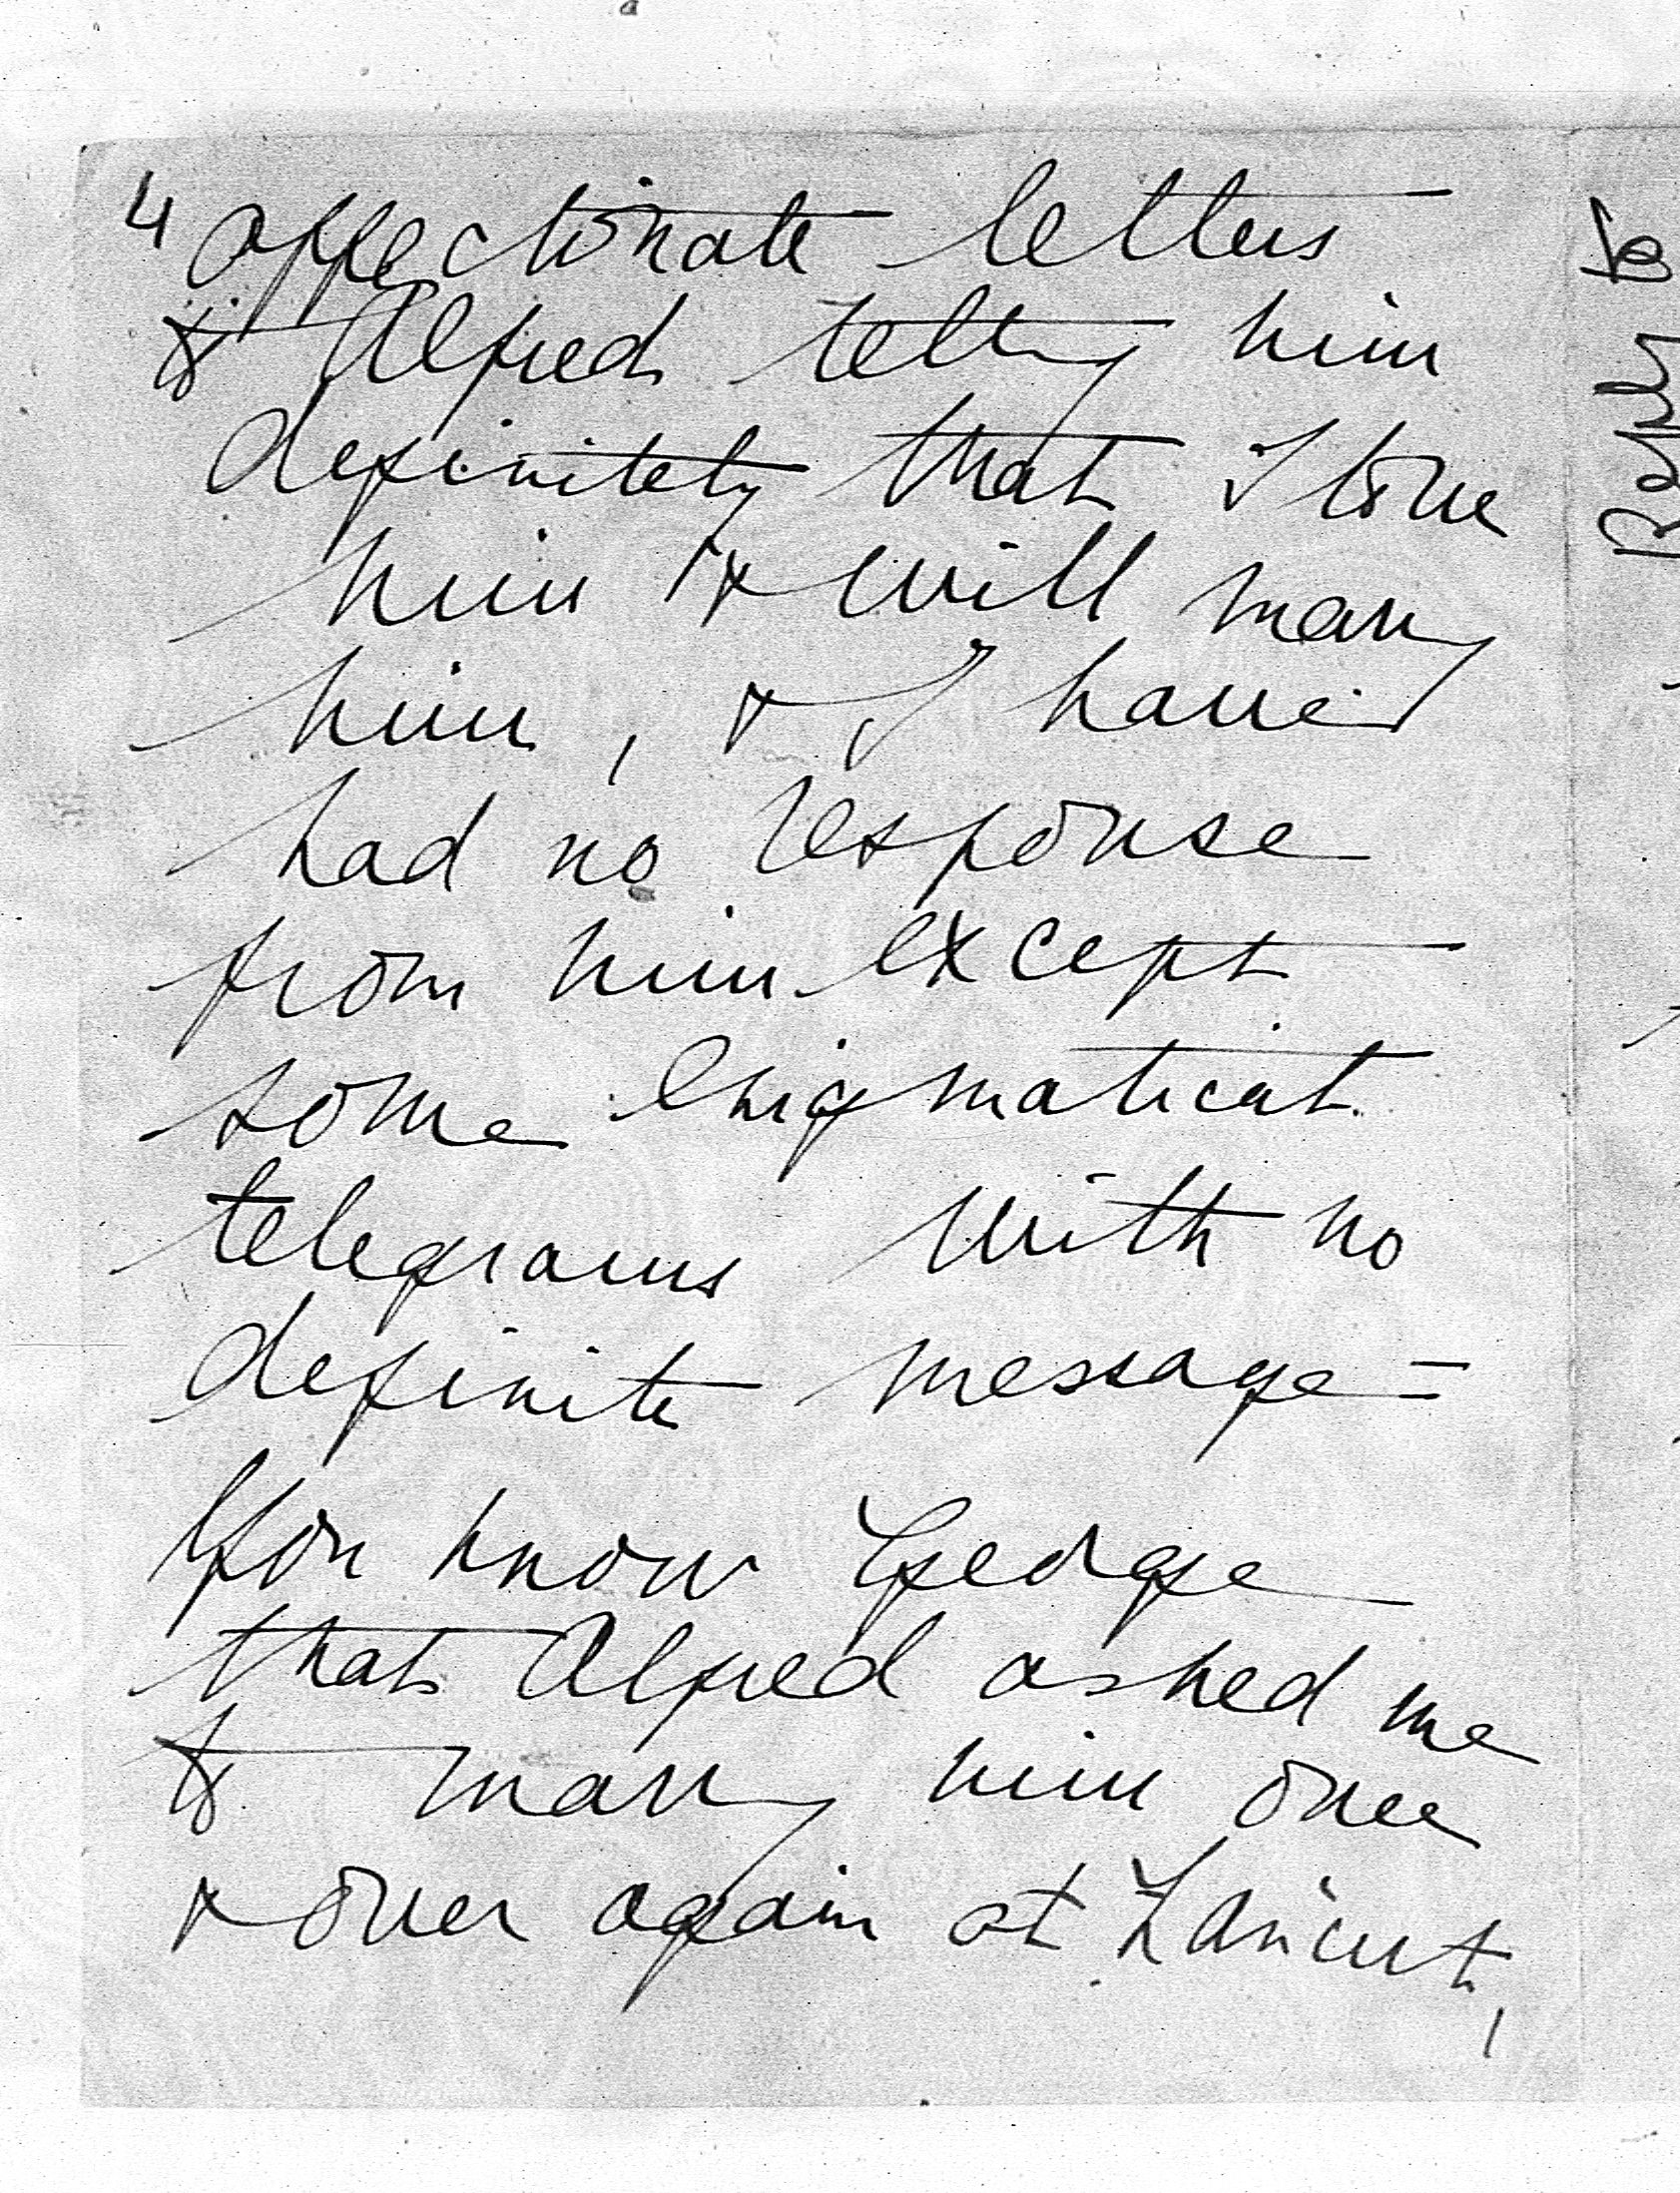 4 affectionate letters
to Alfred telling him
definitely that I love
him & will marry
him, & I have
had no response
from him except
some enigmatical
telegrams with no
definite message =
You know George
that Alfred asked me
to marry him over
& over again at Lancut,